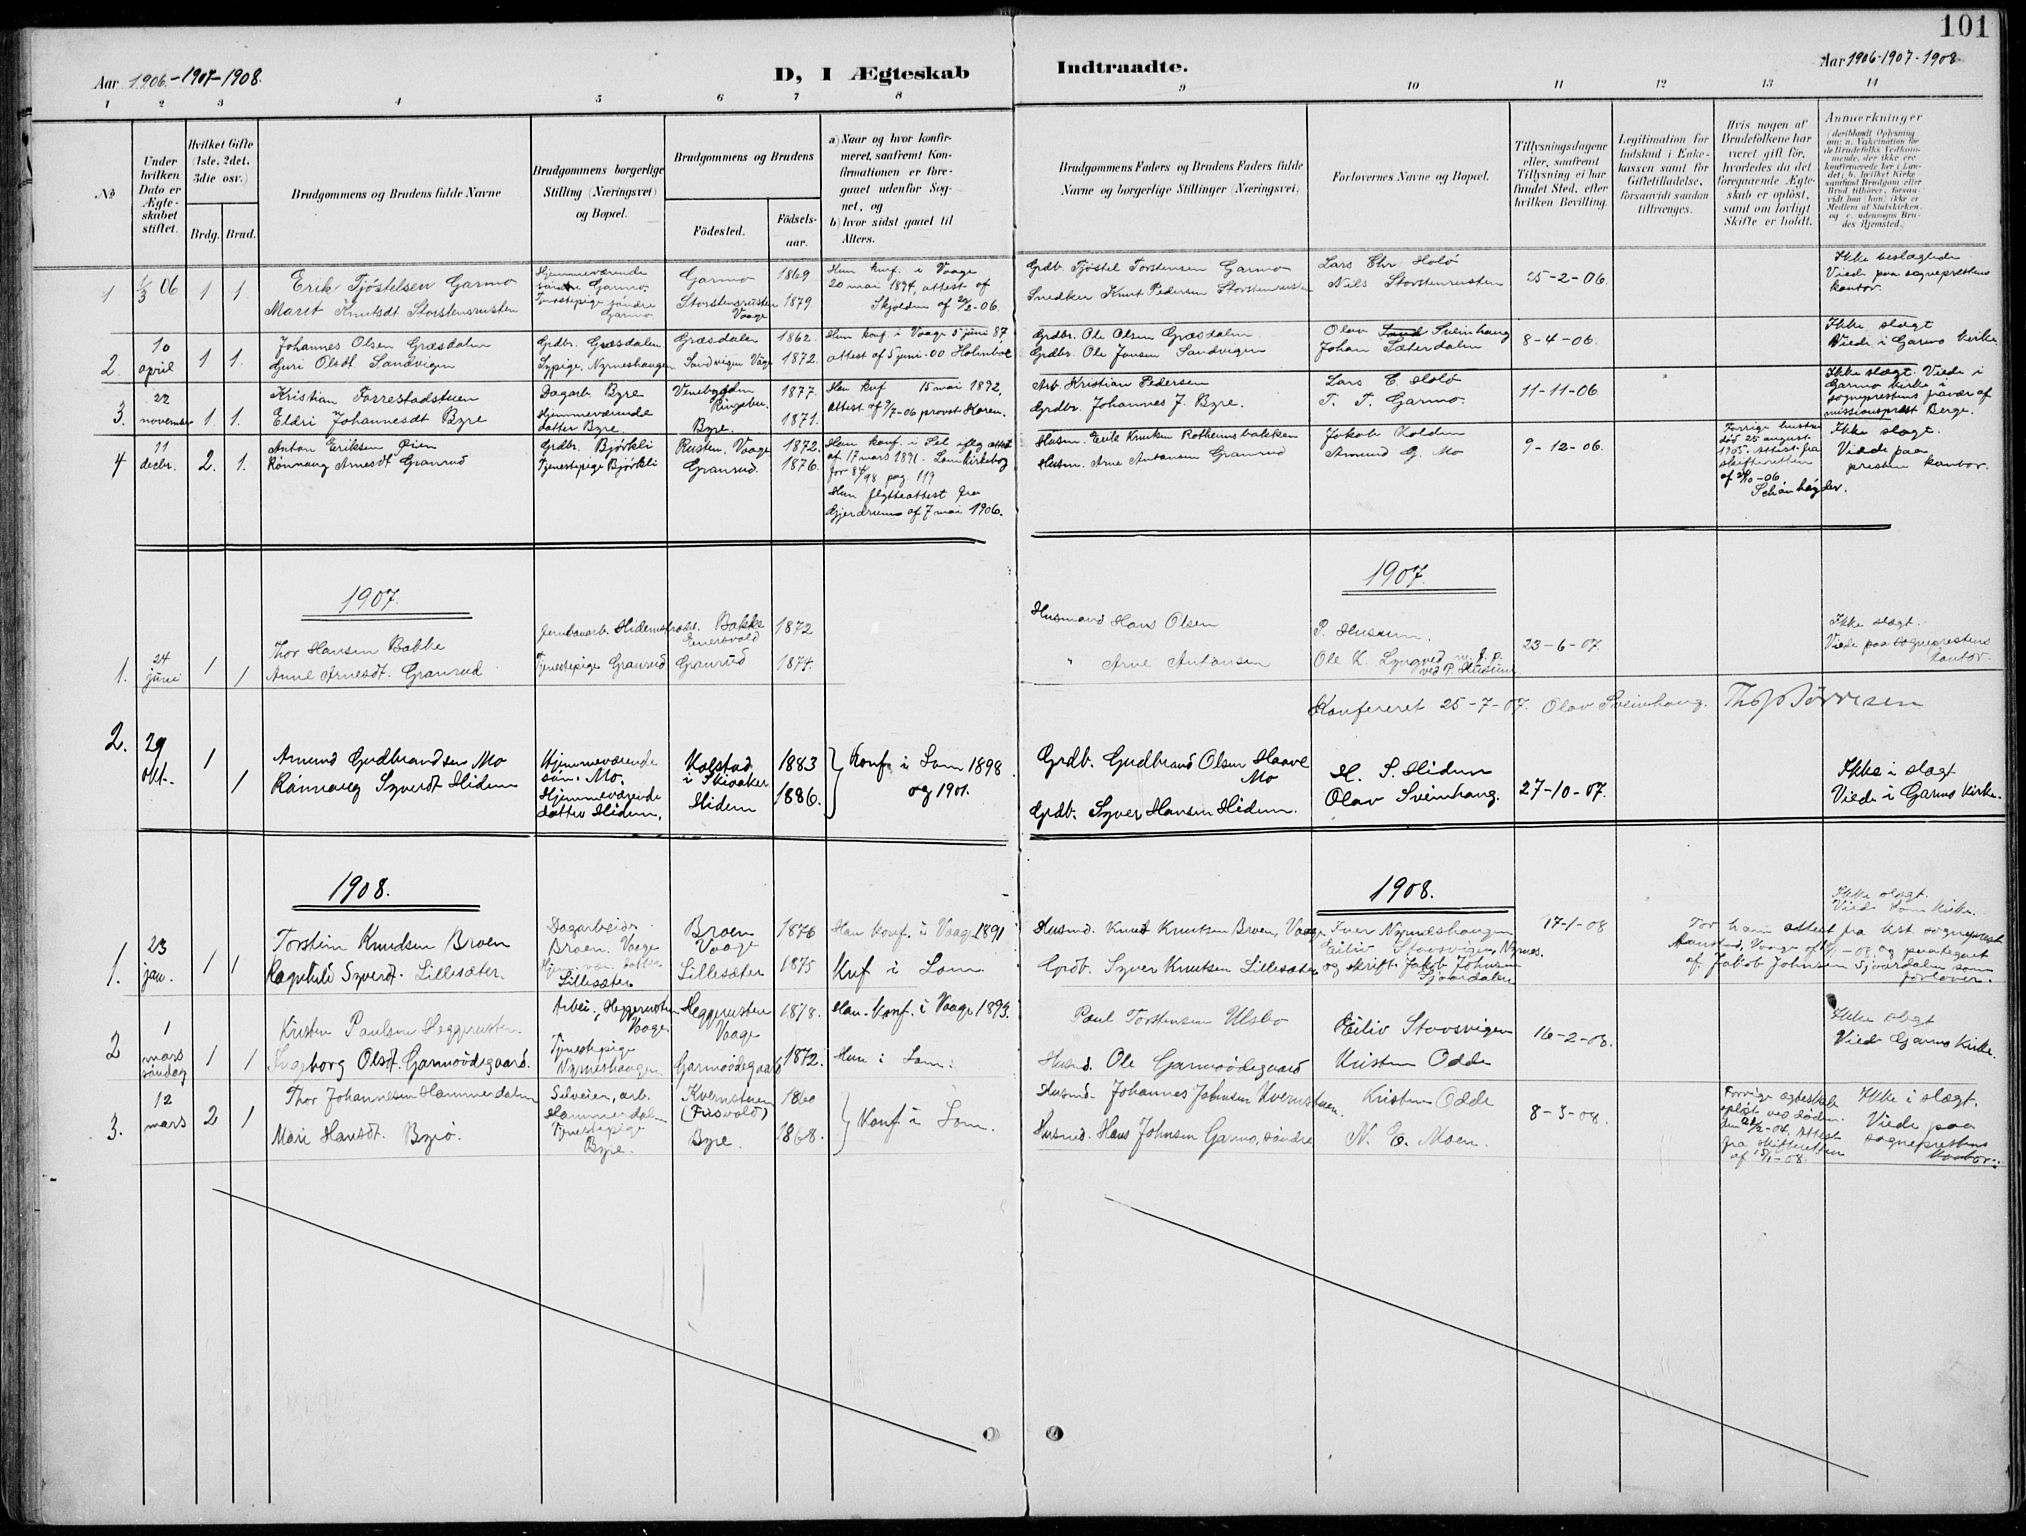 101
Aar 1906-1907-1908.
D, I Ægteskab Indtraadte.
Aar 1906-1907-1908
1 2 3 4 5 6 7 8 9 10 11 12 13 14
No
Under hvilken Dato er Ægteskabet stiftet.
Hvilket Gifte (1ste, 2det, 3die osv.)
Brdg. Brud.
Brudgommens og Brudens fulde Navne
Brudgommens borgerlige Stilling (Næringsvei) og Bopæl.
Brudgommens og Brudens
Fødested. Fødselsaar.
a) Naar og hvor konfirmeret, saafremt Konfirmationen er foregaaet udenfor Sognet, og
b) hvor sidst gaaet til Alters.
Brudgommens Faders og Brudens Faders fulde Navne og borgerlige Stillinger (Næringsvei)
Forlovernes Navne og Bopæl.
Tillysningsdagene eller, saafremt Tillysning ei har fundet Sted, efter hvilken Bevilling.
Legitimation for Indskud i Enkekassen samt for Giftetilladelse, forsaavidt saadan tiltrænges.
Hvis nogen af Brudefolkene har været gift før, hvorledes da det foregaaende Ægteskab er opløst, samt om lovligt Skifte er holdt.
Anmerkninger
1 1/3 06 1 1
Erik Tjøstelsen Garmo
Marit Knutsdt Storstensrusten
Hjemmeværende søndre Garmo
Tjenestepige søndre Garmo
Garmo 1869
Storstensrusten Vaage 1879
Hun konf. i Vaage 20 mai 1894, attest af Skjolden af 2/2-06.
Grdb. Tjøstel Torstensen Garmo
Snedker Knut Pedersen Storstensrusten
Lars Chr. Holø
Nils Storstensrusten
25-2-06.
Ikke beslægtede
Viede paa sogneprestens kantor.
2. 10 april 1 1.
Johannes Olsen Græsdalen
Guri Olsdt Sandvigen
Grdbr. Græsdalen
Sypige, Nymeshaugen
Græsdalen 1862.
Sandvigen Vaage 1872.
Hun konf. i Vaage 5 juni 87, attest af 5 juni -00 Holmboe
Grdbr. Ole Olsen Græsdalen
Grdbr. Ole Jansen Sandvigen
Olav Sveinhaug
Johan Sæterdalen
8-4-06.
Ikke slægt
Viede i Garmo kirke.
3. 22 november 1 1.
Kristian Forrestadstuen
Eldri Johannesdt Byre
Dagarb. Byre
Hjemmeværende datter Byre
Venebygden Ringebu. 1877.
Byre. 1871.
Han knf 15 mai 1892,
Attest af 9/7-06 provst Haren.
Arb. Kristian Pedersen
Grdbr. Johannes J. Byre.
Lars E. Holø
T. T. Garmo.
11-11-06.
Ikke slægt. Viede i Garmo kirke i sogneprestens fravær af missionsprest Berge.
4 31 decbr. 2. 1.
Anton Eriksen Øien
Rønnaug Arnesdt Granrud
Grdbr. Bjørkli
Tjenestepige Bjørkli
Rusten, Vaage 1872.
Granrud. 1876.
Han konf. i Sel ifølg attest af 17 mars 1891. Lom kirkebog for 84/98 pag. 117
Hun flytteattest fra Gjerdrum af 7 mai 1906.
Husm. Erik Knutsen Rothemsbakken
Husm. Arne Antonsen Granrud
Jakob Kolden
Amund G. Mo
9-12-06.
Forrige hustru død 25 august 1905. Attest fra skifteretten af 24/10-06
Schønhøyder.
Ikke slægt.
Viede paa presten kantor.
1907.
1907.
1. 24 juni 1 1
Thor Hansen Bakke
Anne Arnesdt. Granrud
Jernbanarb. Hidemstrædet.
Tjenestepige Granrud
Bakke Enersvold 1872
Granrud 1874.
Husmand Hans Olsen
" Arne Antonsen
P. Husum.
Ole K. Lyngved m. f. p. ved P. Husum
23-6-07.
Ikke slægt.
Viede paa sogneprestens kantor.
Konfereret 25-7-07. Olav Sveinhaug. Th. J. Tørresen
2. 29 okt. 1 1
Amund Gudbrandsen Mo
Rønnaug Syverdt Hidem
Hjemmeværende søn. Mo.
Hjemmeværende datter Hidem.
Kolstad i Skiaaker 1883
Hidem 1886.
Konf. i Lom 1898 og 1901.
Grdb. Gudbrand Olsen Haave Mo
Grdb. Syver Hansen Hidem.
H. S. Hidem
Olav Sveinhaug.
27-10-07.
Ikke i slægt
Viede i Garmo kirke.
1908.
1908.
1. 23 jan. 1 1
Torstein Knudsen Broen
Ragnhild Syverdt. Lillesæter.
Dagarbeider Broen. Vaage
Lillesæter
Broen Vaage 1876
Lillesæter 1875
Han konf. i Vaage 1891
Knf i Lom
Husmd. Knud Knutsen Broen, Vaage
Grdb. Syver Knutsen Lillesæter
Iver Nymeshaugen
Eiliv Stoosvigen, Nymes.
og skrift. Jakob Johnsen Sjoardalen
17-1-08
For ham attest fra kst sogneprest Aanstad, Vaage og paategnet af Jakob Johnsen Sjoardalen som forlover.
Ikke slægt.
Viede Lom kirke.
2 1 mars søndag 1 1
Kristen Paulsen Heggerusten.
Ingeborg Olsdt. Garmoødegaard.
Arbei., Heggerusten Vaage.
Tjenestepige Nymeshaugen
Heggerusten Vaage 1878.
Garmoødegaard 1872.
Han konf. i Vaage 1893.
Hun i Lom.
Paul Torstensen Ulsbo
Husmd. Ole Garmoødegaard
Eiliv Stoosvigen
Kristen Odde
16-2-08.
Ikke slægt
Viede Garmo kirke.
3. 12 mars 2 1
Thor Johannesen Hammerdalen
Mari Hansdt. Byrø.
Selveier, arb. Hammerdalen
Tjenestepige Byre.
Kvernstuen (Fusvold) 1860
Byre. 1868.
Konf. i Lom.
Husmd. Johannes Johnsen Kvernstuen.
Husmd. Hans Johnsen Garmo, søndre
Kristen Odde
N. E. Moen.
8-3-08.
Forrige ægteskab opløst ved døden den 22/2-04. Attest fra skifteretten af 15/1-08.
Ikke i slægt.
Viede paa sogneprestens kontor.